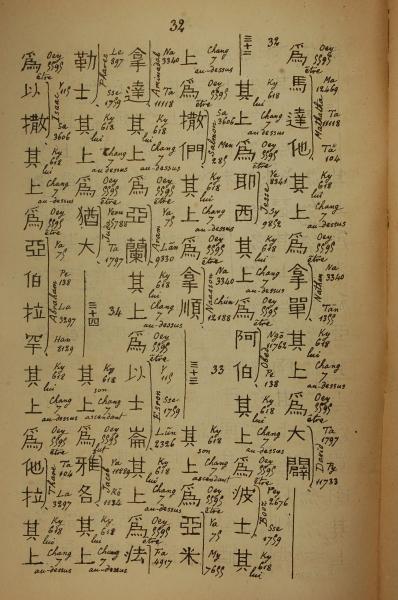 32
爲馬達他其上爲拿單其上爲大闢
Oey 5595 être Ma 12469 Ta 11118 Ta 104 Mathatha Ky 618 lui Chang 7 au-dessus Oey 5595 être Na 3340 Tan 1355 Nathan Ky 618 lui Chang 7 au-dessus Oey 5595 être Ta 1797 Py 11733 David
三十二其上爲耶西其上爲阿伯其上爲波士其
32 Ky 618 lui Chang 7 au-dessus Oey 5595 être Ya 8341 Sy 9852 Jesse Ky 618 lui Chang 7 au-dessus Oey 5595 être Ngò 11762 Pe 138 Obed Ky 618 lui Chang 7 au-dessus Oey 5595 être Po 2676 Sse 1759 Booz Ky 618 lui
上爲撒們其上爲拿順三十三其上爲亞米
Chang 7 au-dessus Oey 5595 être Sa 3606 Men 285 Salmon Ky 618 lui Chang 7 au-dessus Oey 5595 être Na 3340 Chùn 12188 Naasson 33 Ky 618 son Chang 7 ascendant Oey 5595 être Ya 75 My 7655
拿達其上爲亞蘭其上爲以士崙其上爲法
Na 3340 Ta 11118 Aminadab Ky 618 lui Chang 7 au-dessus Oey 5595 être Ya 75 Lân 9330 Aram Ky 618 lui Chang 7 au-dessus Oey 5595 être Y 115 Sse 1759 Lûn 2326 Esron Ky 618 lui Chang 7 au-dessus Oey 5595 être Fa 4917
勒士其上爲猶大三十四其上爲雅各其上
Le 897 Sse 1759 Phares Ky 618 lui Chang 7 au-dessus Oey 5595 être Yeou 5788 Ta 1797 34 Ky 618 son Chang 7 ascendant Oey 5595 fut Ya Kŏ 1134 Jacob Ky 618 lui Chang 7 au-dessus
爲以撒其上爲亞伯拉罕其上爲他拉其上
Oey 5595 être Y 115 Sa 3606 Isaac Ky 618 lui Chang 7 au-dessus Oey 5595 être Ya 75 Pe 138 La 3297 Han 8129 Abraham Ky 618 lui Chang 7 au-dessus Oey 5595 être Ta 104 La 3297 Tharé Ky 618 lui Chang 7 au-dessus